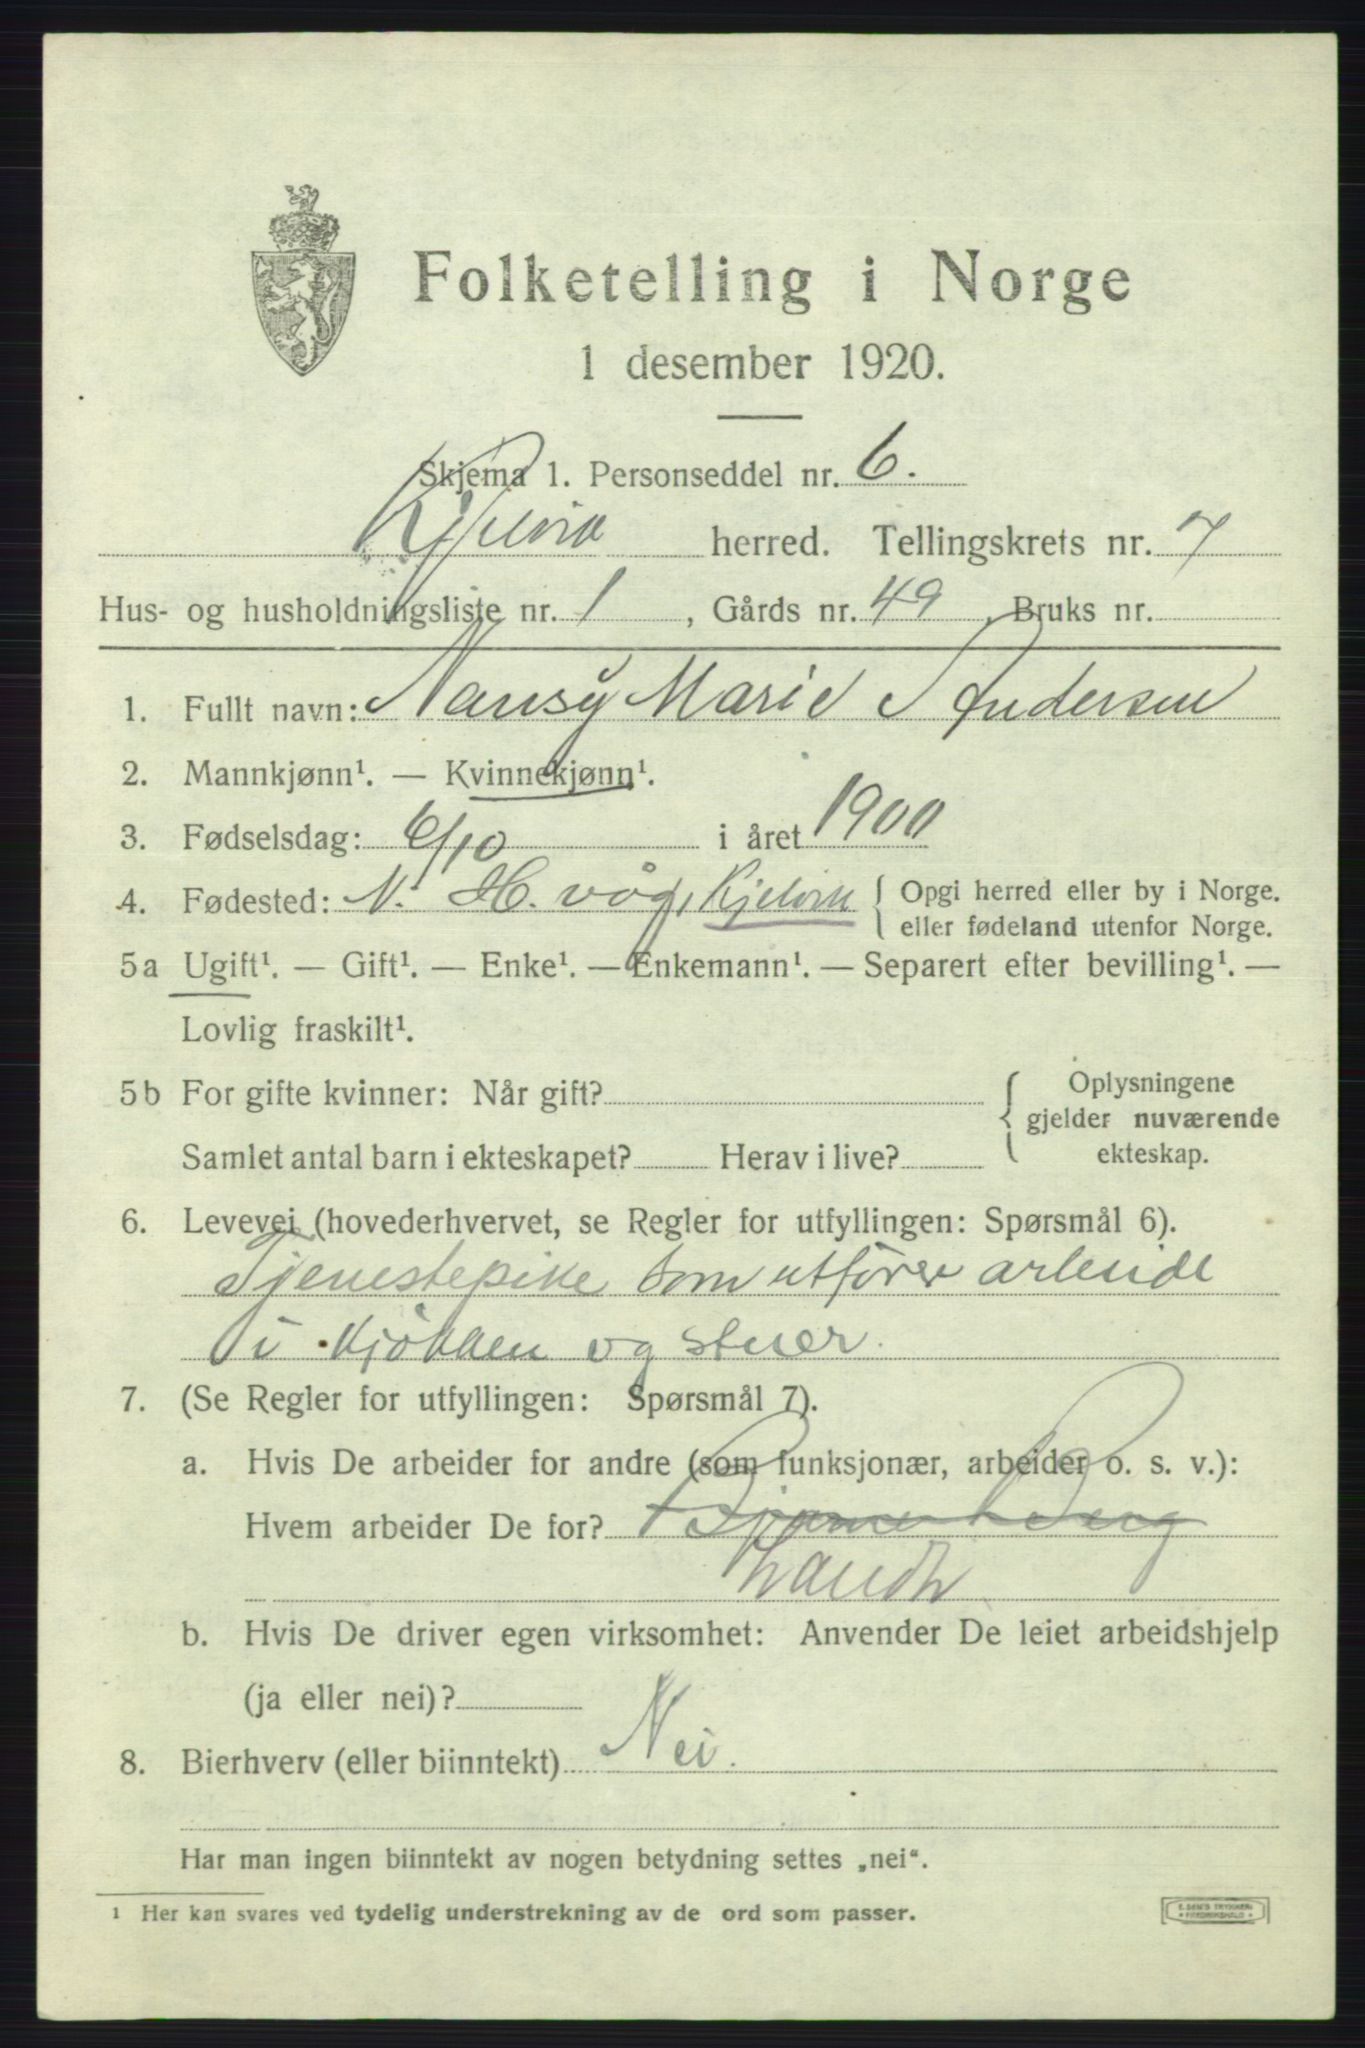 Folketelling i Norge
1 desember 1920.
Skjema 1. Personseddel nr. 6.
Kjelvik herred. Tellingskrets nr. 7
Hus- og husholdningsliste nr. 1, Gårds nr. 49, Bruks nr.
1. Fullt navn: Nansy Marie Andersen
2. Mannkjønn¹. — Kvinnekjønn¹.
3. Fødselsdag: 6/10 i året 1900
4. Fødested: N. H. våg, Kjelvik { Opgi herred eller by i Norge.
eller fødeland utenfor Norge.
5a Ugift¹. — Gift¹. — Enke¹. — Enkemann¹. — Separert efter bevilling¹. —
Lovlig fraskilt¹.
5b For gifte kvinner: Når gift?
Samlet antal barn i ekteskapet? Herav i live?
{ Oplysningene
gjelder nuværende
ekteskap.
6. Levevei (hovederhvervet, se Regler for utfyllingen: Spørsmål 6).
Tjenestepike som utfører arbeide
i kjökken og stuer.
7. (Se Regler for utfyllingen: Spørsmål 7).
a. Hvis De arbeider for andre (som funksjonær, arbeider o. s. v.):
Hvem arbeider De for? Berg
b. Hvis De driver egen virksomhet: Anvender De leiet arbeidshjelp
(ja eller nei)?
8. Bierhverv (eller biinntekt) Nei.
Har man ingen biinntekt av nogen betydning settes „nei“.
¹ Her kan svares ved tydelig understrekning av de ord som passer.